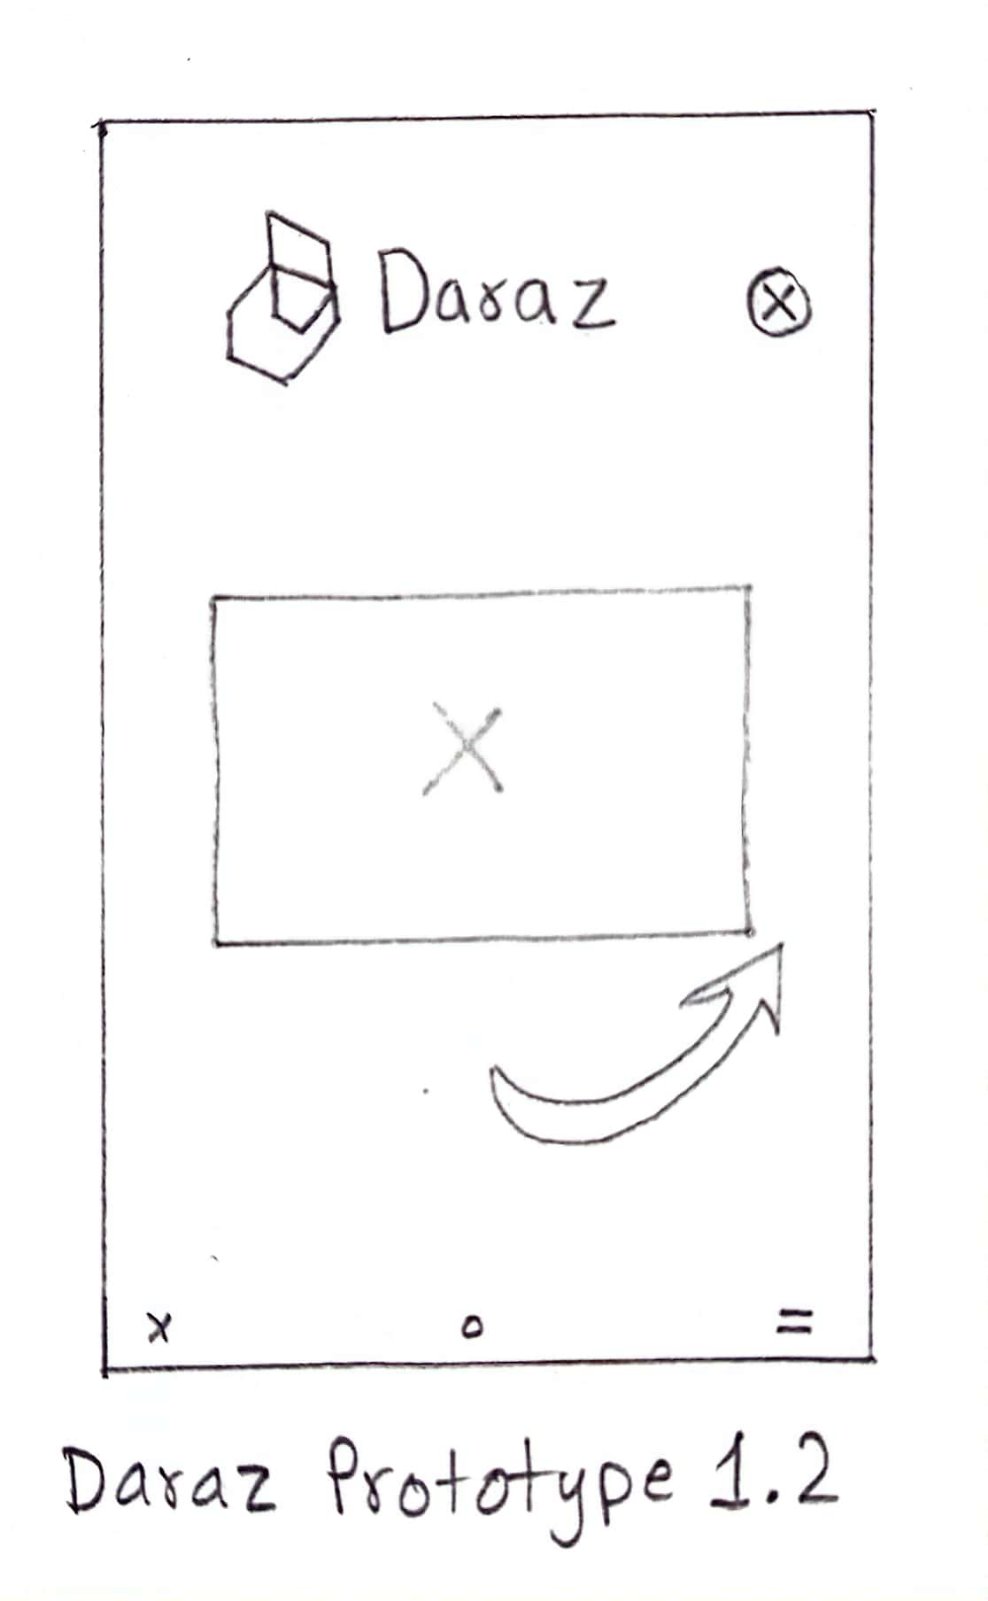 Daraz
x o =
Daraz Prototype 1.2